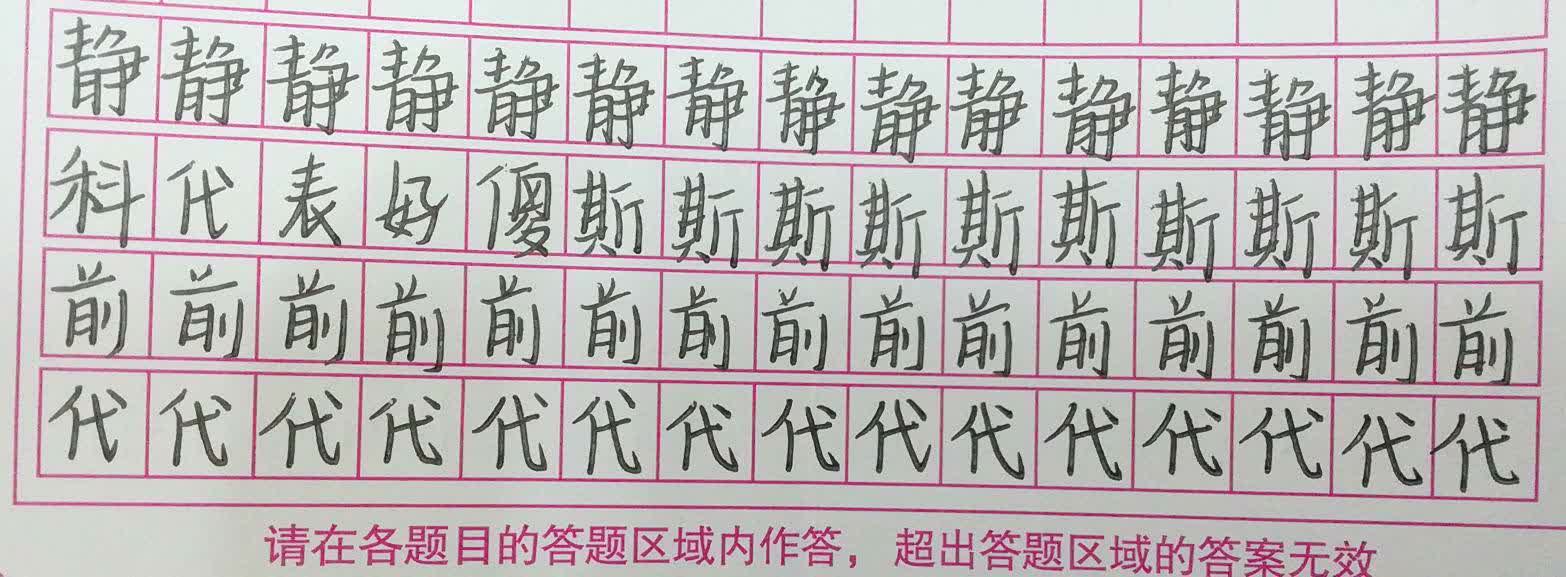 静静静静静静静静静静静静静静静
科代表好傻斯斯斯斯斯斯斯斯斯斯
前前前前前前前前前前前前前前前
代代代代代代代代代代代代代代代
请在各题目的答题区域内作答，超出答题区域的答案无效